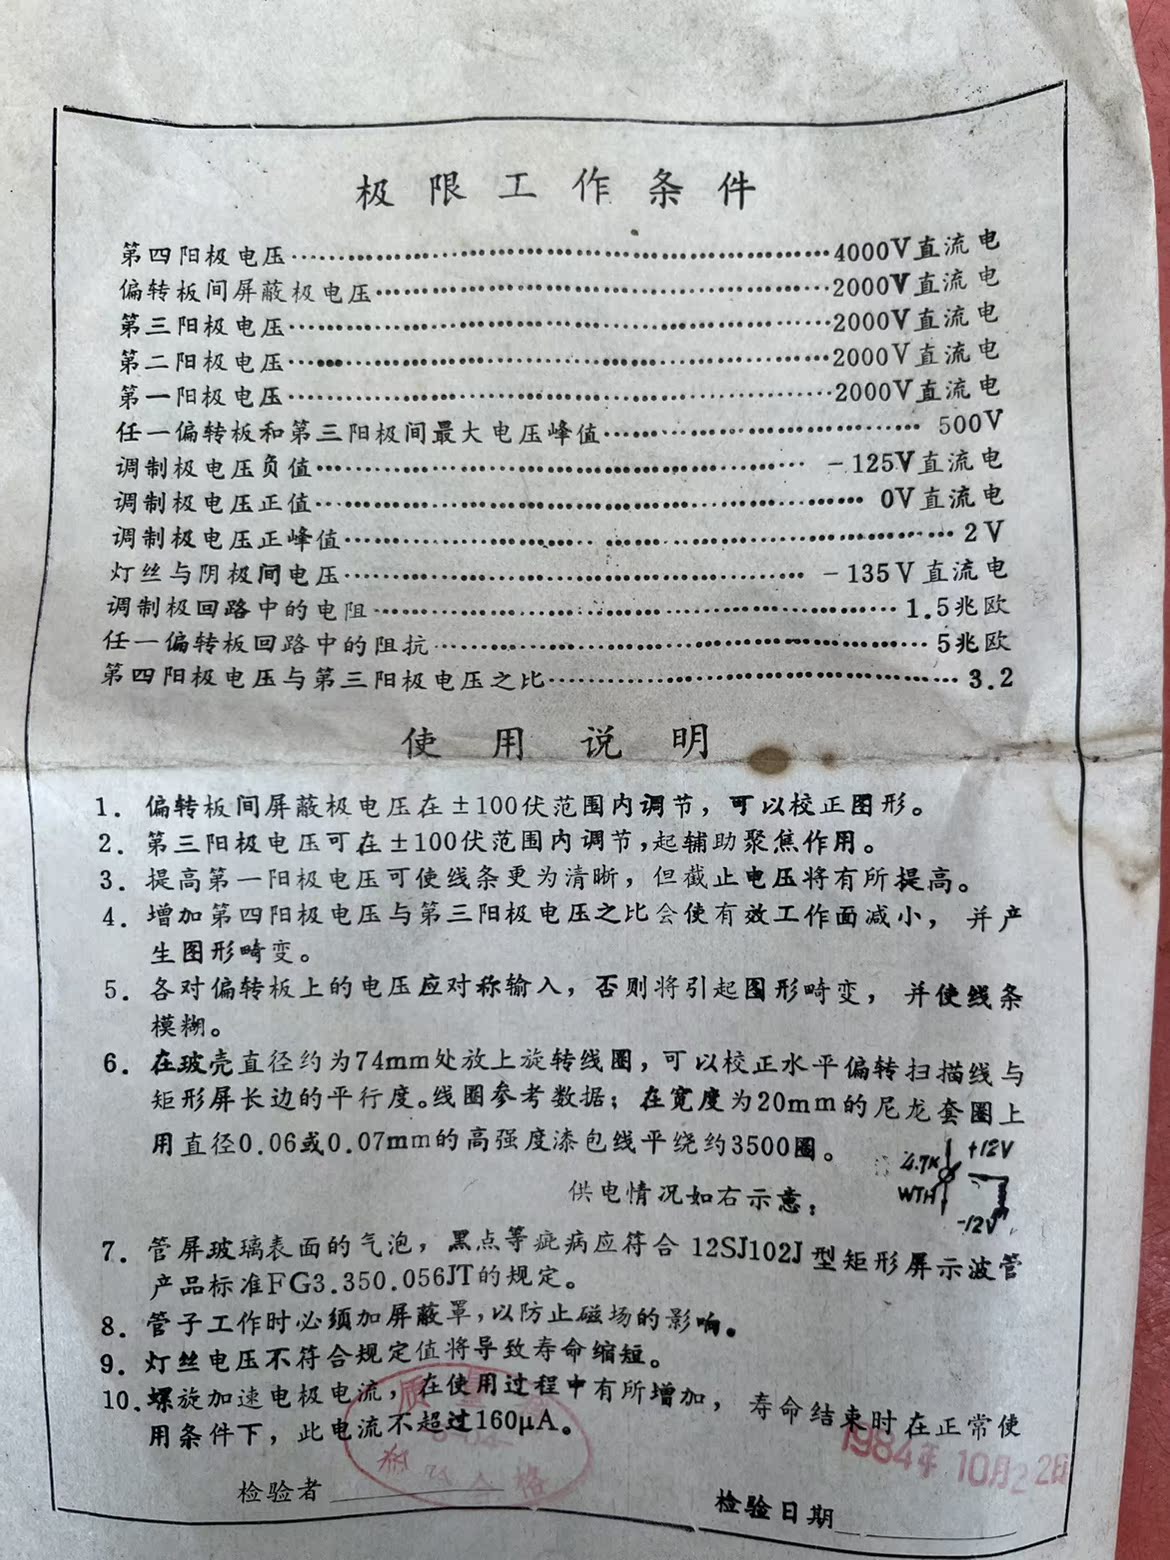 极限工作条件
第四阳极电压……4000V直流电
偏转板间屏蔽极电压……2000V直流电
第三阳极电压……2000V直流电
第二阳极电压……2000V直流电
第一阳极电压……2000V直流电
任一偏转板和第三阳极间最大电压峰值……500V
调制极电压负值……－125V直流电
调制极电压正值……0V直流电
调制极电压正峰值……2V
灯丝与阴极间电压……－135V直流电
调制极回路中的电阻……1.5兆欧
任一偏转板回路中的阻抗……5兆欧
第四阳极电压与第三阳极电压之比……3.2
使用说明
1. 偏转板间屏蔽极电压在±100伏范围内调节，可以校正图形。
2. 第三阳极电压可在±100伏范围内调节，起辅助聚焦作用。
3. 提高第一阳极电压可使线条更为清晰，但截止电压将有所提高。
4. 增加第四阳极电压与第三阳极电压之比会使有效工作面减小，并产
生图形畸变。
5. 各对偏转板上的电压应对称输入，否则将引起图形畸变，并使线条
模糊。
6. 在玻壳直径约为74mm处放上旋转线圈，可以校正水平偏转扫描线与
矩形屏长边的平行度。线圈参考数据；在宽度为20mm的尼龙套圈上
用直径0.06或0.07mm的高强度漆包线平绕约3500圈。
+12V
4.7K
WTH
供电情况如右示意；
-12V
7. 管屏玻璃表面的气泡，黑点等疵病应符合12SJ102J型矩形屏示波管
产品标准FG3.350.056JT的规定。
8. 管子工作时必须加屏蔽罩，以防止磁场的影响。
9. 灯丝电压不符合规定值将导致寿命缩短。
10. 螺旋加速电极电流，在使用过程中有所增加，寿命结束时在正常使
用条件下，此电流不超过160μA。
质量
合格
1984年10月22日
检验者
检验日期